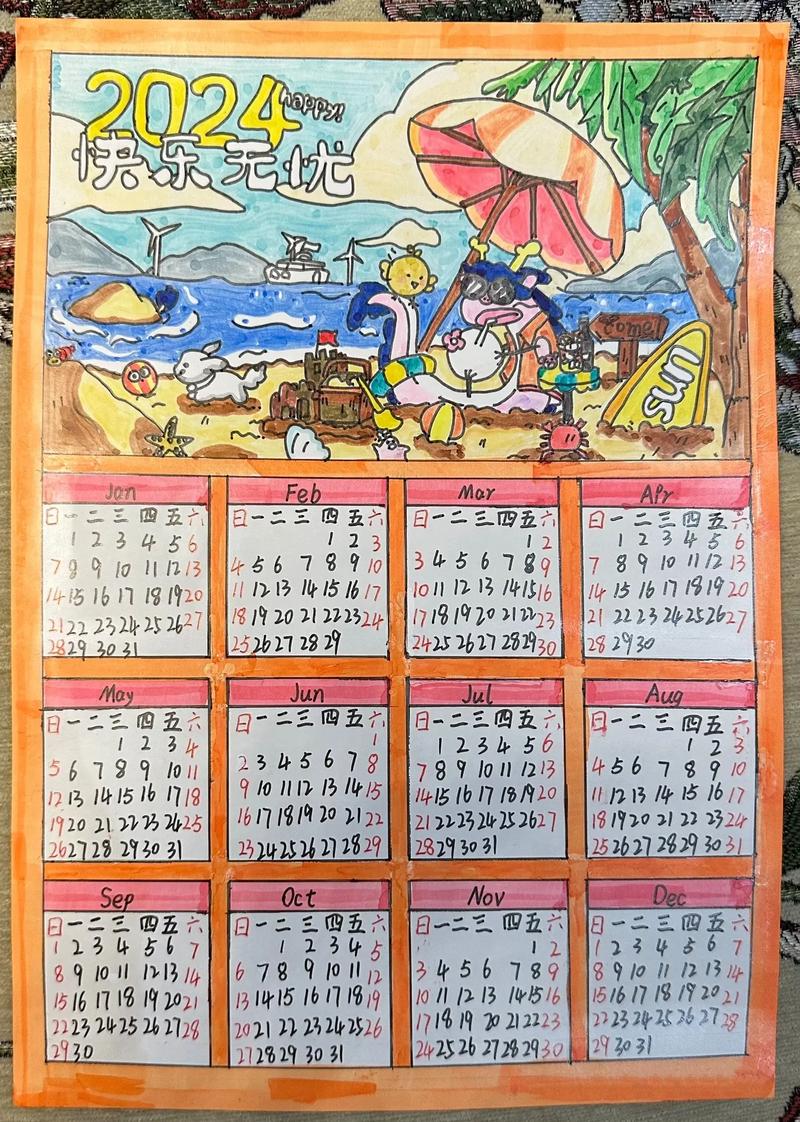 2024 happy!
快乐无忧
Come!
SUN
Jan
日 一 二 三 四 五 六
1 2 3 4 5 6
7 8 9 10 11 12 13
14 15 16 17 18 19 20
21 22 23 24 25 26 27
28 29 30 31
Feb
日 一 二 三 四 五 六
1 2 3
4 5 6 7 8 9 10
11 12 13 14 15 16 17
18 19 20 21 22 23 24
25 26 27 28 29
Mar
日 一 二 三 四 五 六
1 2
3 4 5 6 7 8 9
10 11 12 13 14 15 16
17 18 19 20 21 22 23
24 25 26 27 28 29 30
Apr
日 一 二 三 四 五 六
1 2 3 4 5 6
7 8 9 10 11 12 13
14 15 16 17 18 19 20
21 22 23 24 25 26 27
28 29 30
May
日 一 二 三 四 五 六
1 2 3 4
5 6 7 8 9 10 11
12 13 14 15 16 17 18
19 20 21 22 23 24 25
26 27 28 29 30 31
Jun
日 一 二 三 四 五 六
1
2 3 4 5 6 7 8
9 10 11 12 13 14 15
16 17 18 19 20 21 22
23 24 25 26 27 28 29
Jul
日 一 二 三 四 五 六
1 2 3 4 5 6
7 8 9 10 11 12 13
14 15 16 17 18 19 20
21 22 23 24 25 26 27
28 29 30 31
Aug
日 一 二 三 四 五 六
1 2 3
4 5 6 7 8 9 10
11 12 13 14 15 16 17
18 19 20 21 22 23 24
25 26 27 28 29 30 31
Sep
日 一 二 三 四 五 六
1 2 3 4 5 6 7
8 9 10 11 12 13 14
15 16 17 18 19 20 21
22 23 24 25 26 27 28
29 30
Oct
日 一 二 三 四 五 六
1 2 3 4 5
6 7 8 9 10 11 12
13 14 15 16 17 18 19
20 21 22 23 24 25 26
27 28 29 30 31
Nov
日 一 二 三 四 五 六
1 2
3 4 5 6 7 8 9
10 11 12 13 14 15 16
17 18 19 20 21 22 23
24 25 26 27 28 29 30
Dec
日 一 二 三 四 五 六
1 2 3 4 5 6 7
8 9 10 11 12 13 14
15 16 17 18 19 20 21
22 23 24 25 26 27 28
29 30 31